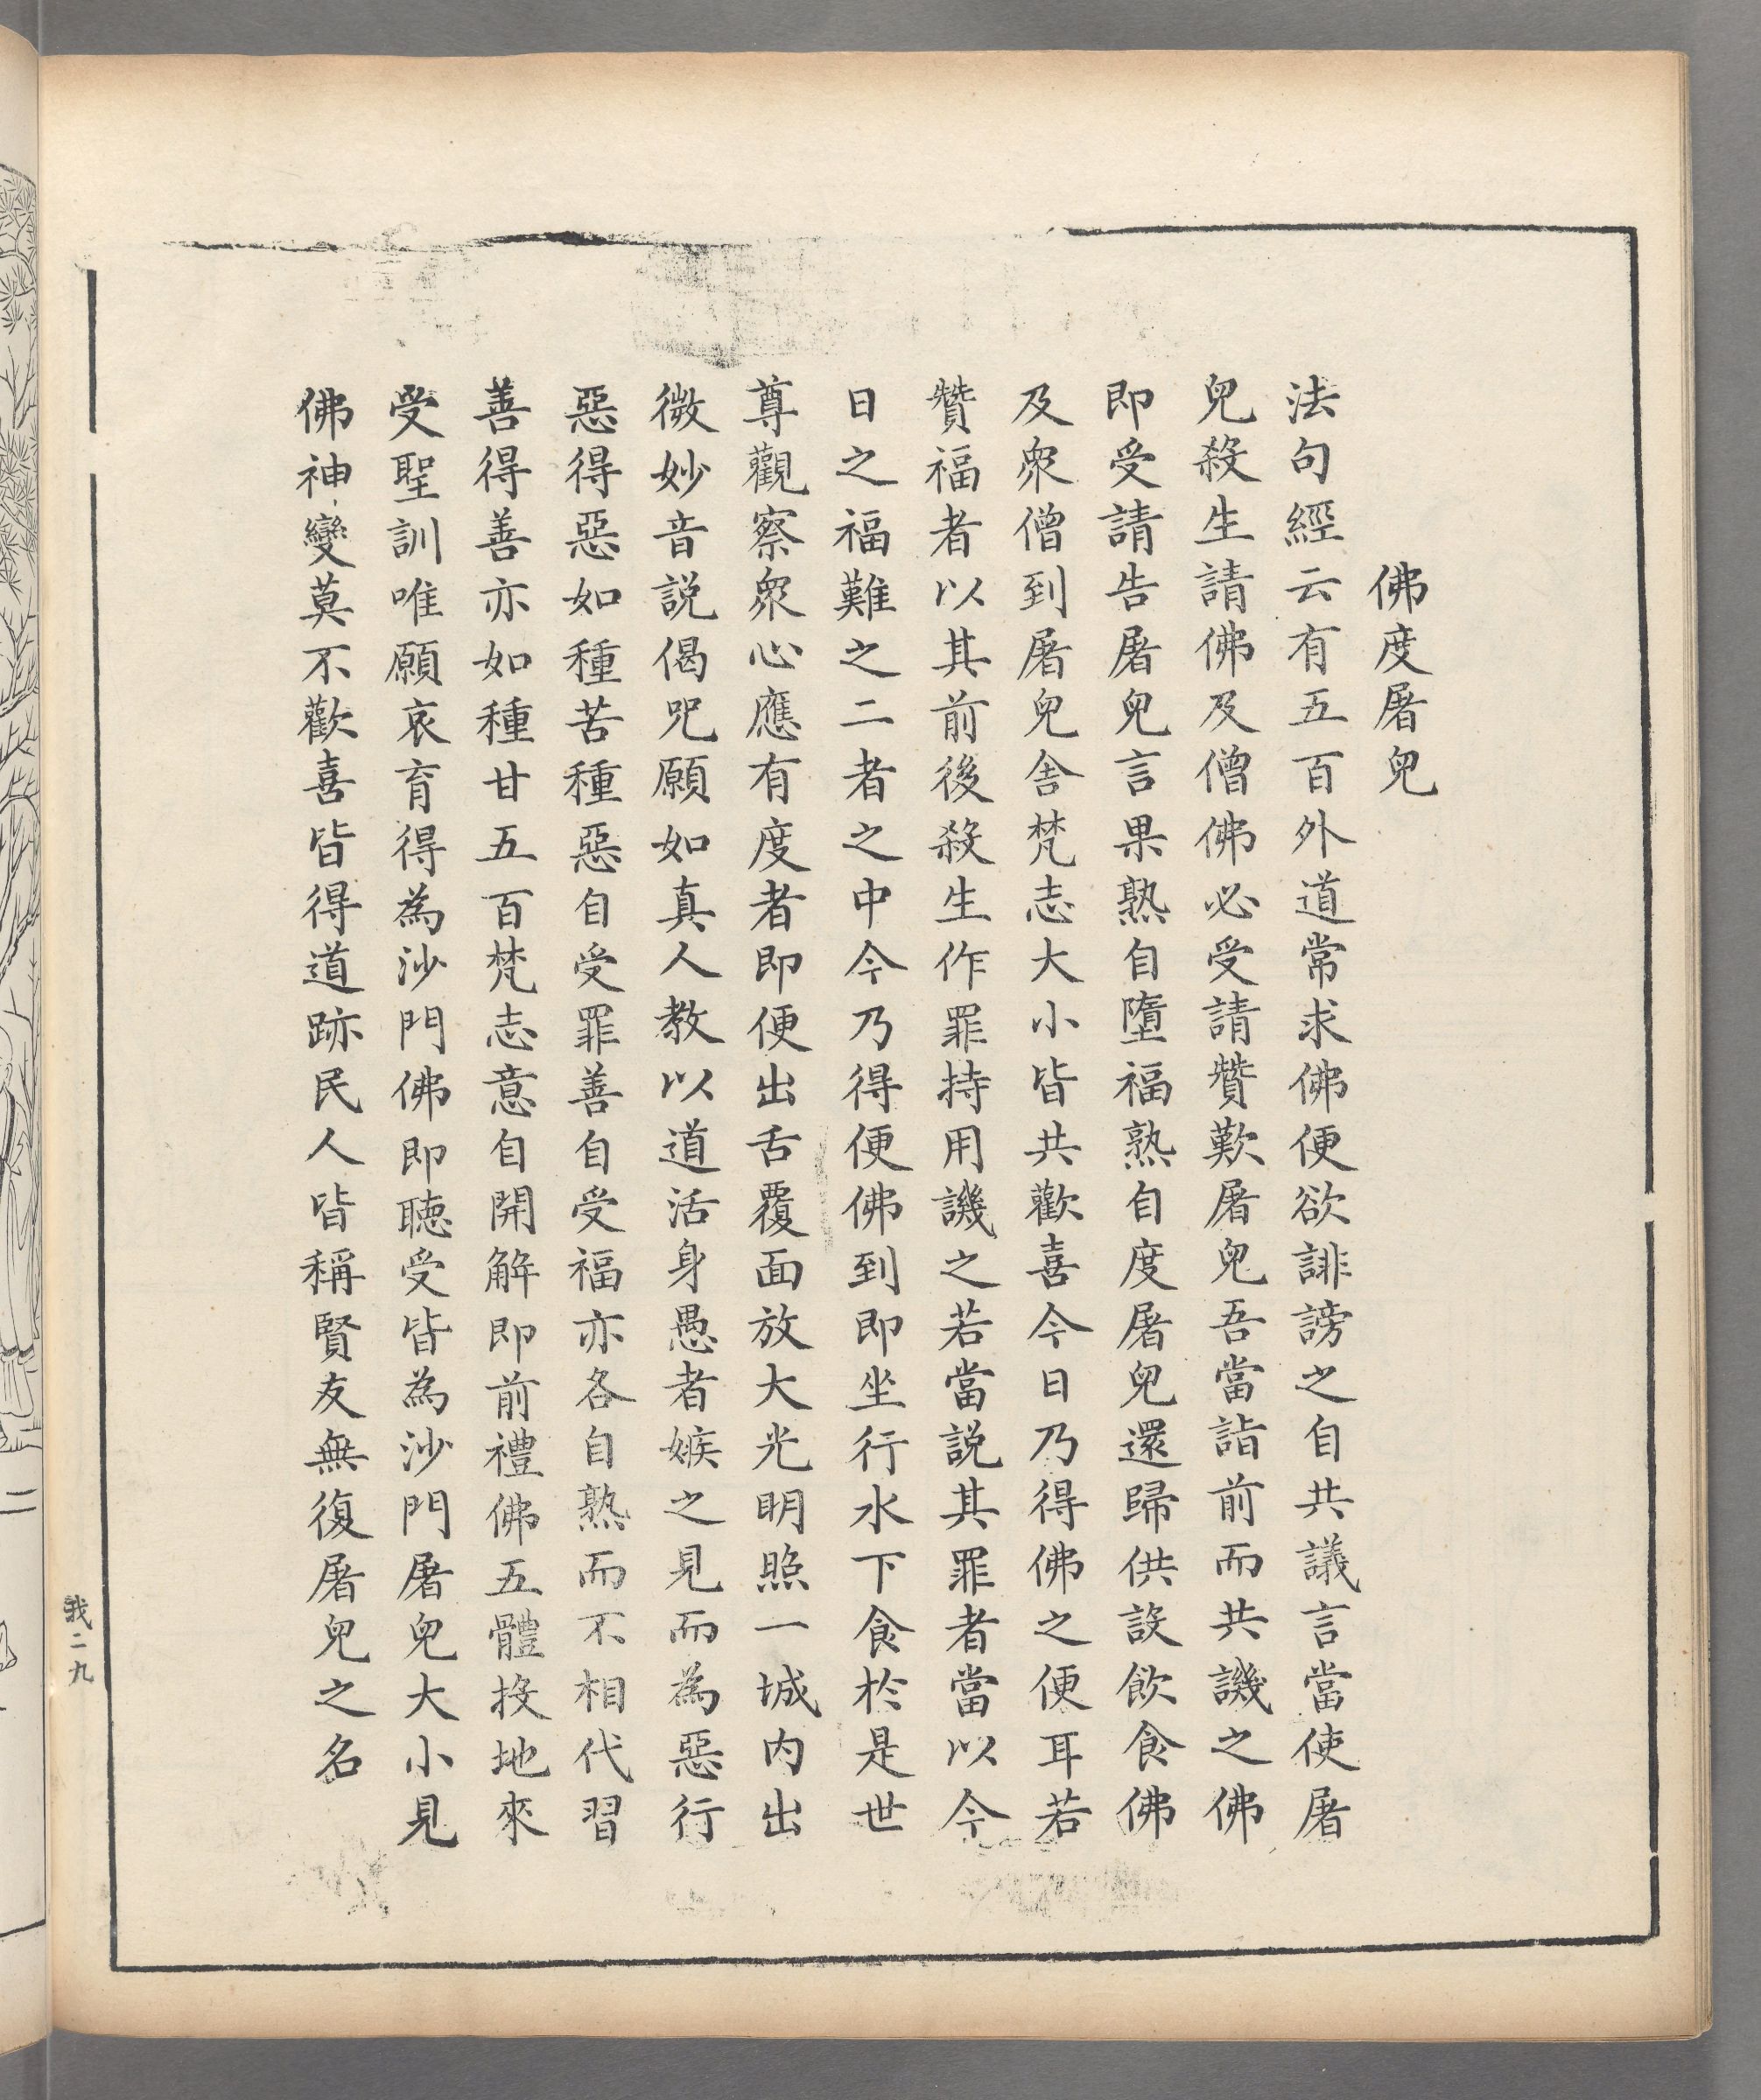 佛度屠兒
法句經云有五百外道常求佛便欲誹謗之自共議言當使屠
兒殺生請佛及僧佛必受請贊歎屠兒吾當詣前而共譏之佛
即受請告屠兒言果熟自墮福熟自度屠兒還歸供設飲食佛
及衆僧到屠兒舍梵志大小皆共歡喜今日乃得佛之便耳若
贊福者以其前後殺生作罪持用譏之若當説其罪者當以今
日之福難之二者之中今乃得便佛到即坐行水下食於是世
尊觀察衆心應有度者即便出舌覆面放大光明照一城内出
微妙音説偈呪願如真人教以道活身愚者嫉之見而為惡行
惡得惡如種苦種惡自受罪善自受福亦各自熟而不相代習
善得善亦如種甘五百梵志意自開解即前禮佛五體投地來
受聖訓唯願哀育得為沙門佛即聽受皆為沙門屠兒大小見
佛神變莫不歡喜皆得道跡民人皆稱賢友無復屠兒之名
我二九
二